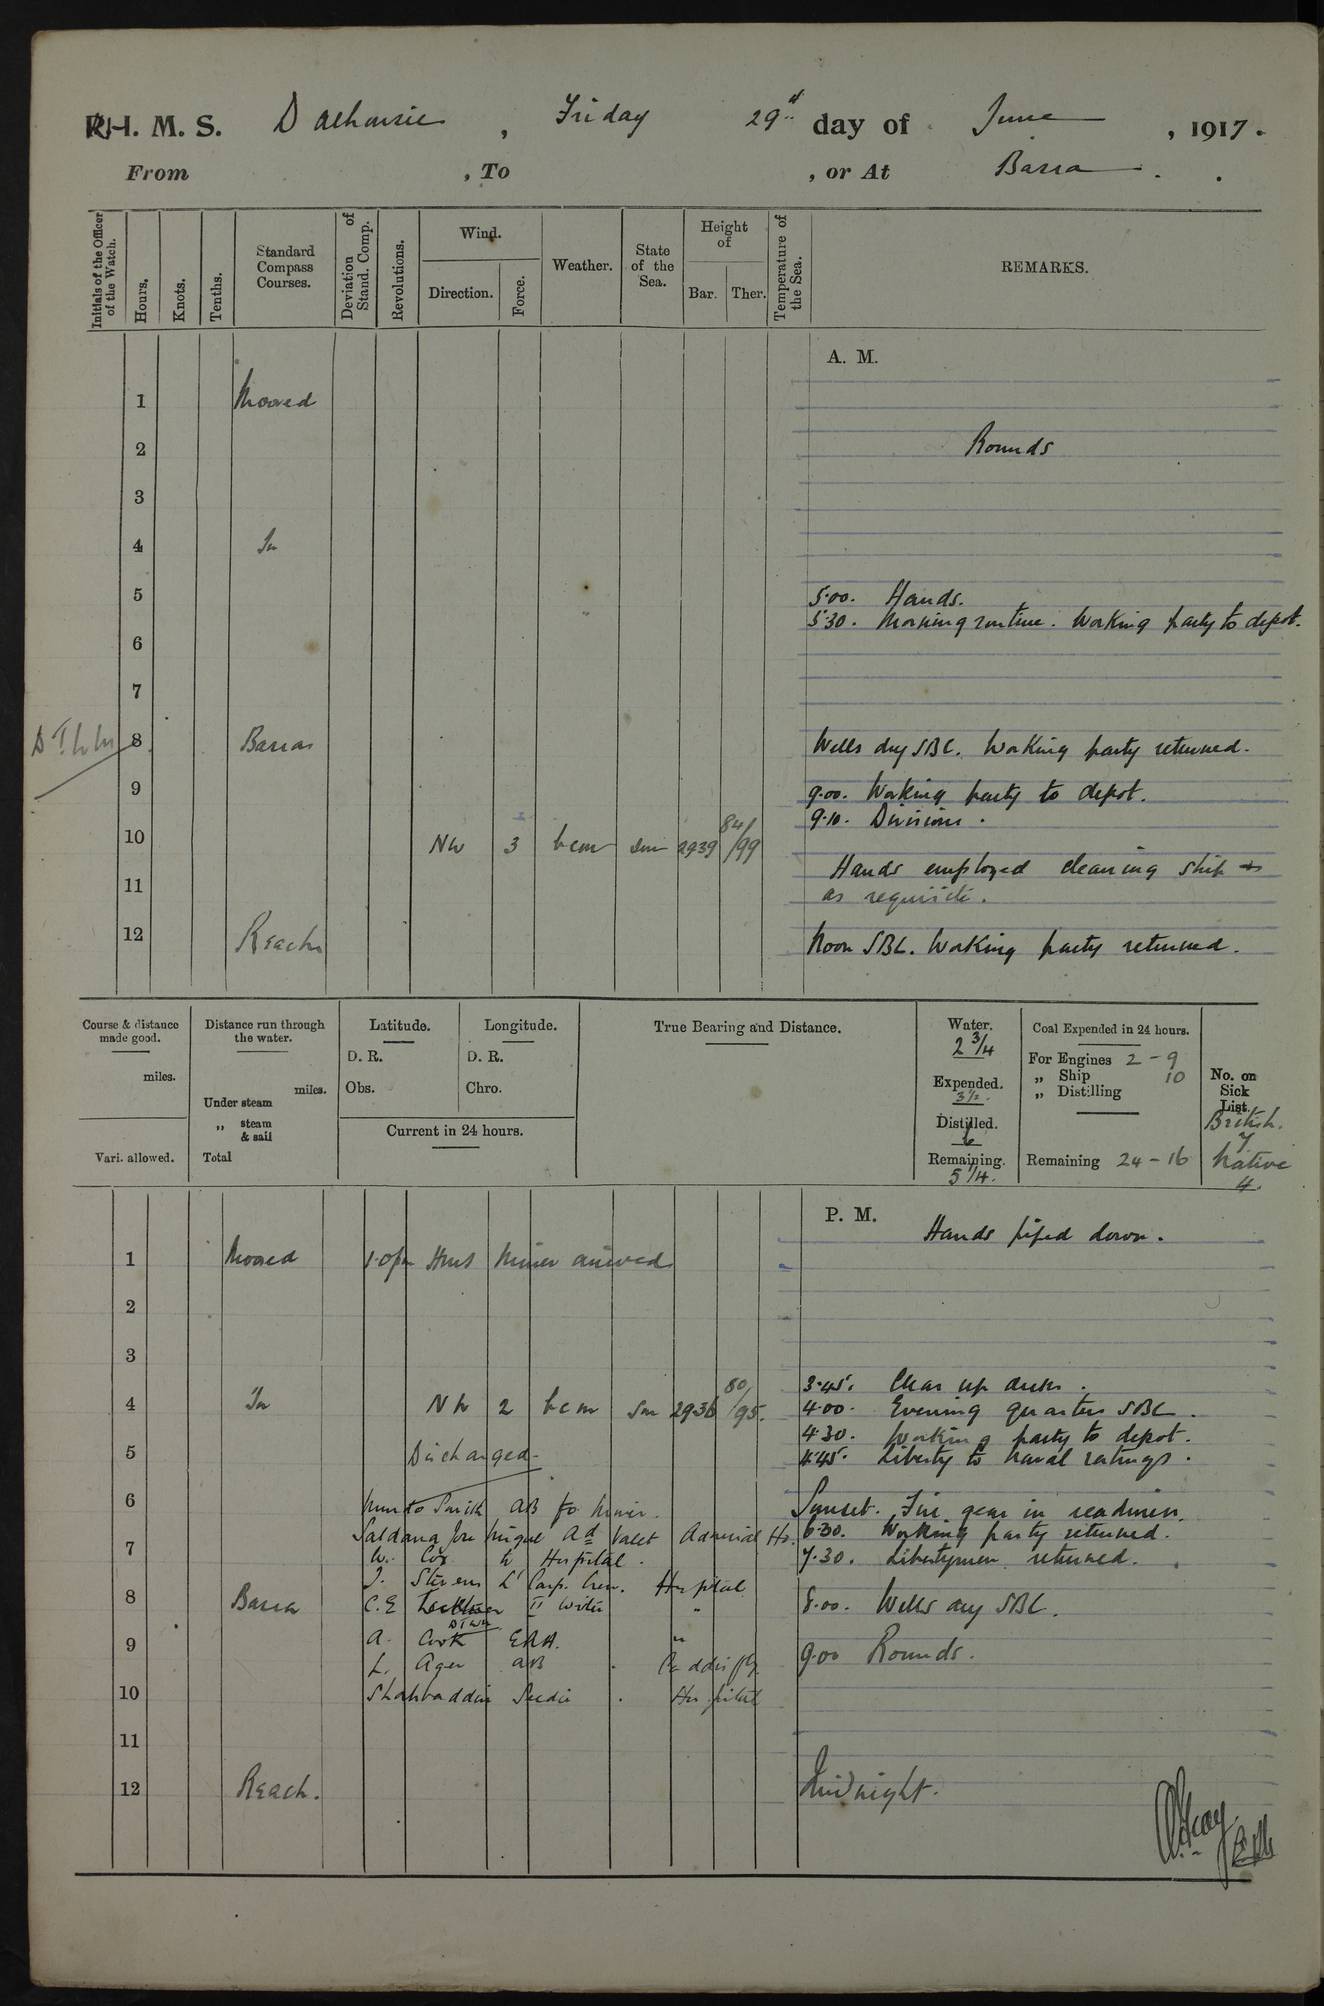 R.I.M.S. Dalhousie, Friday 29th day of June, 1917.
From , To , or At Basra.
Initials of the Officer of the Watch.
Hours.
Knots.
Tenths.
Standard Compass Courses.
Deviation of Stand. Comp.
Revolutions.
Wind.
Direction.
Force.
Weather.
State of the Sea.
Height of
Bar. Ther.
Temperature of the Sea.
REMARKS.
A. M.
1 Moored
2 Rounds
3
4 In
5 5.00. Hands.
5.30. Morning routine. Working party to depot.
6
7
8 Basra Wells dry SBC. Working party returned.
9 9.00. Working party to depot.
9.10. Divisions.
10 NW 3 bcm sm 2939 84/99
Hands employed cleaning ship &
11 as requisite.
12 Reach Noon SBC. Working party returned.
Course & distance made good.
miles.
Vari. allowed.
Distance run through the water.
miles.
Under steam
„ steam & sail
Total
Latitude.
D. R.
Obs.
Longitude.
D. R.
Chro.
Current in 24 hours.
True Bearing and Distance.
Water.
2 3/4
Expended.
3 1/2.
Distilled.
6
Remaining.
5 1/4.
Coal Expended in 24 hours.
For Engines 2 - 9
„ Ship 10
„ Distilling
Remaining 24 - 16
No. on Sick List.
British.
7
Native
4.
P. M.
Hands piped down.
1 Moored 1.0pm HMS Miner arrived
2
3
3.45. Clear up decks.
4 In NW 2 bcm sm 2936 80/95. 4.00. Evening quarters SBC.
4.30. Working party to depot.
5 Discharged 4.45. Liberty to naval ratings.
6 Smith AB to Miner. Sunset. Fire gear in readiness.
Saldana Valet Admiral Ho. 6.30. Working party returned.
7 W. Cox Hospital. 7.30. Libertymen returned.
J. Stevens Carp. Crew. Hospital
8 Basra C.E. Writer „ 8.00. Wells dry SBC.
A. Cook ERA. „
9 L. Ager AB 9.00 Rounds.
10 Shahbaddin Hospital
11
12 Reach. Midnight.